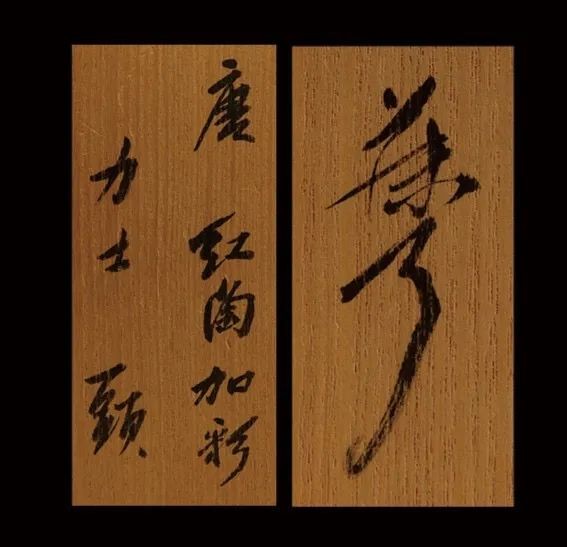 唐 紅陶加彩
力士 頭